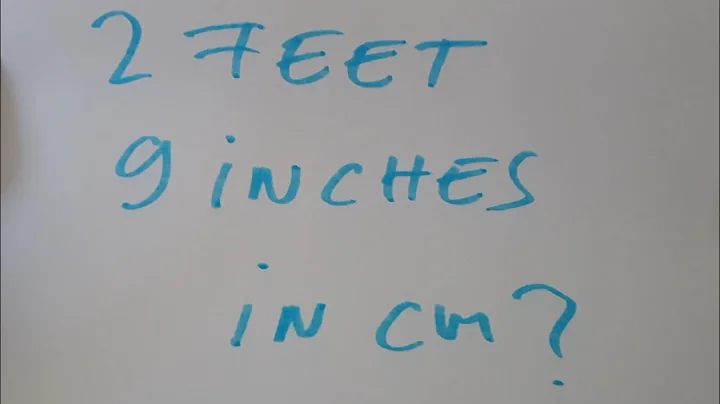 2 FEET
9 iNCHES
iN cm?